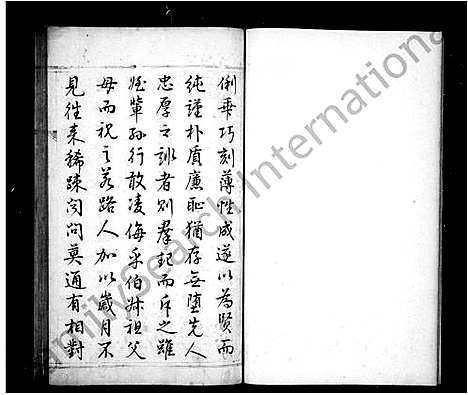 俐乖巧刻薄性成遂以為賢而
純謹朴盾廉恥猶存無墮先人
忠厚之訓者則群起而斥之雖
姪輩孫行敢凌侮乎伯叔祖父
母而視之若路人加以歲月不
見往来稀踈问问莫通有相對
FamilySearch International